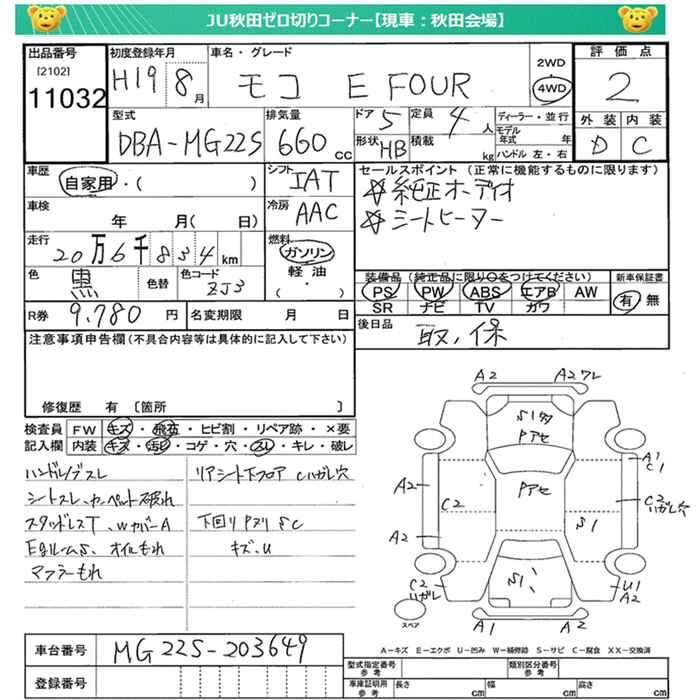 JU秋田ゼロ切りコーナー【現車：秋田会場】
出品番号 [2102] 11032
初度登録年月 H19 8月
車名・グレード モコ E FOUR
2WD 4WD
評価点 2
外装 D 内装 C
型式 DBA-MG22S
排気量 660cc
ドア 5 定員 4人
形状 HB 積載 kg
ディーラー・並行
モデル年式 年
ハンドル 左・右
車歴 自家用・( )
シフト IAT
セールスポイント（正常に機能するものに限ります）
☆純正オーディオ
☆シートヒーター
車検 年 月( 日)
冷房 AAC
走行 20万6千834km
燃料 ガソリン 軽油 ( )
色 黒 色替 色コード ZJ3
装備品（純正品に限り○をつけてください）
PS PW ABS エアB AW
SR ナビ TV カワ
新車保証書 有 無
R券 9,780円 名変期限 月 日
後日品 取、保
注意事項申告欄（不具合内容等は具体的に記入して下さい）
修復歴 有〔箇所 〕
検査員記入欄
FW キズ・飛石・ヒビ割・リペア跡・×要
内装 キズ・汚レ・コゲ・穴・スレ・キレ・破レ
ハンドルスレ
シートスレ、カーペット破れ
スタッドレスT、WカバーA
Egルーム S、オイルもれ
マフラーもれ
リアシート下フロア Cハガレ穴
下回り Pヌリ SC
キズ、U
A2 A2ワレ
S1タ
Pアセ
A1
C1
A2
C2
Pアセ
C2
ハガレ穴
S1
A2
C2
ハガレ
S1
U1
A2
スペア
A1 A2
A－キズ E－エクボ U－凹み W－補修跡 S－サビ C－腐食 XX－交換済
車台番号 MG22S-203649
登録番号
型式指定番号 参考
類別区分番号 参考
車庫証明用 参考 長さ cm 幅 cm 高さ cm